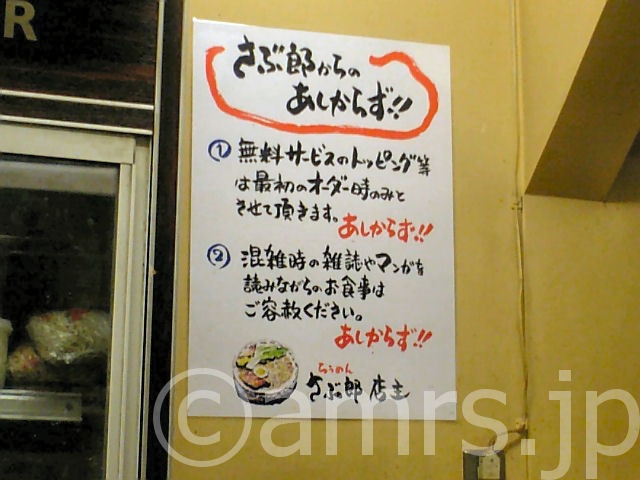 R
さぶ郎からの
あしからず!!
① 無料サービスのトッピング等
は最初のオーダー時のみと
させて頂きます。
あしからず!!
② 混雑時の雑誌やマンガを
読みながらのお食事は
ご容赦ください。
あしからず!!
らぅめん
さぶ郎 店主
©amrs.jp